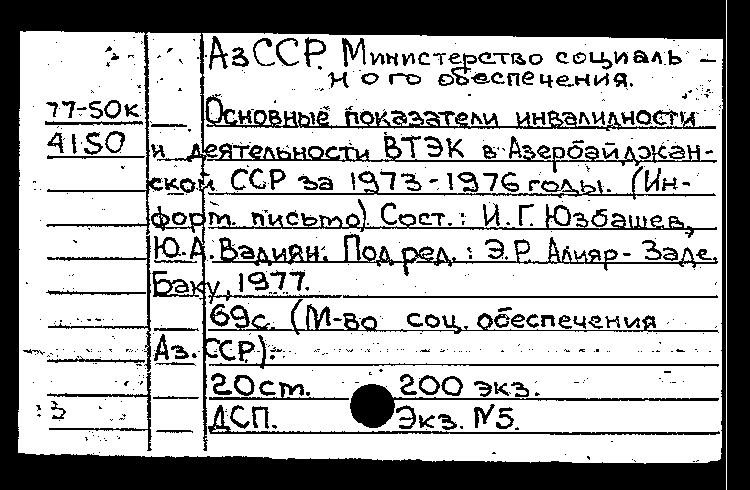 АзССР. Министерство социаль-
ного обеспечения.
77-50к Основные показатели инвалидности
4150 и деятельности ВТЭК в Азербайджан-
ской ССР за 1973-1976 годы. (Ин-
форт. письмо) Сост.: И.Г. Юзбашев,
Ю.А. Вадиян. Под ред.: Э.Р. Алияр-Заде.
Баку, 1977.
69с. (М-во соц. обеспечения
Аз.ССР).
20ст. 200 экз.
3 ДСП. Экз. №5.